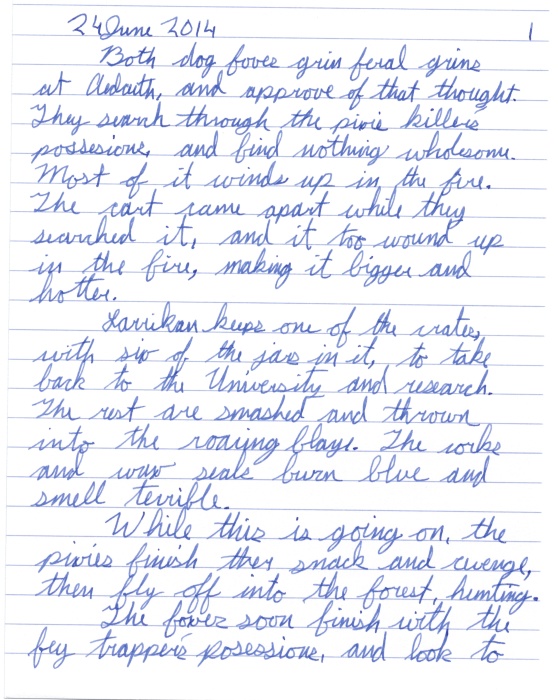 24 June 2014 1
Both dog foxes grin feral grins
at Ardaith, and approve of that thought.
They search through the pixie killers
possesions, and find nothing wholesome.
Most of it winds up in the fire.
The cart came apart while they
searched it, and it too wound up
in the fire, making it bigger and
hotter.
Larrikan keeps one of the crates,
with six of the jars in it, to take
back to the University and research.
The rest are smashed and thrown
into the roaring blaze. The corks
and wax seals burn blue and
smell terrible.
While this is going on, the
pixies finish they snack and revenge,
then fly off into the forest, hunting.
The foxes soon finish with the
fey trapper's posessions, and look to